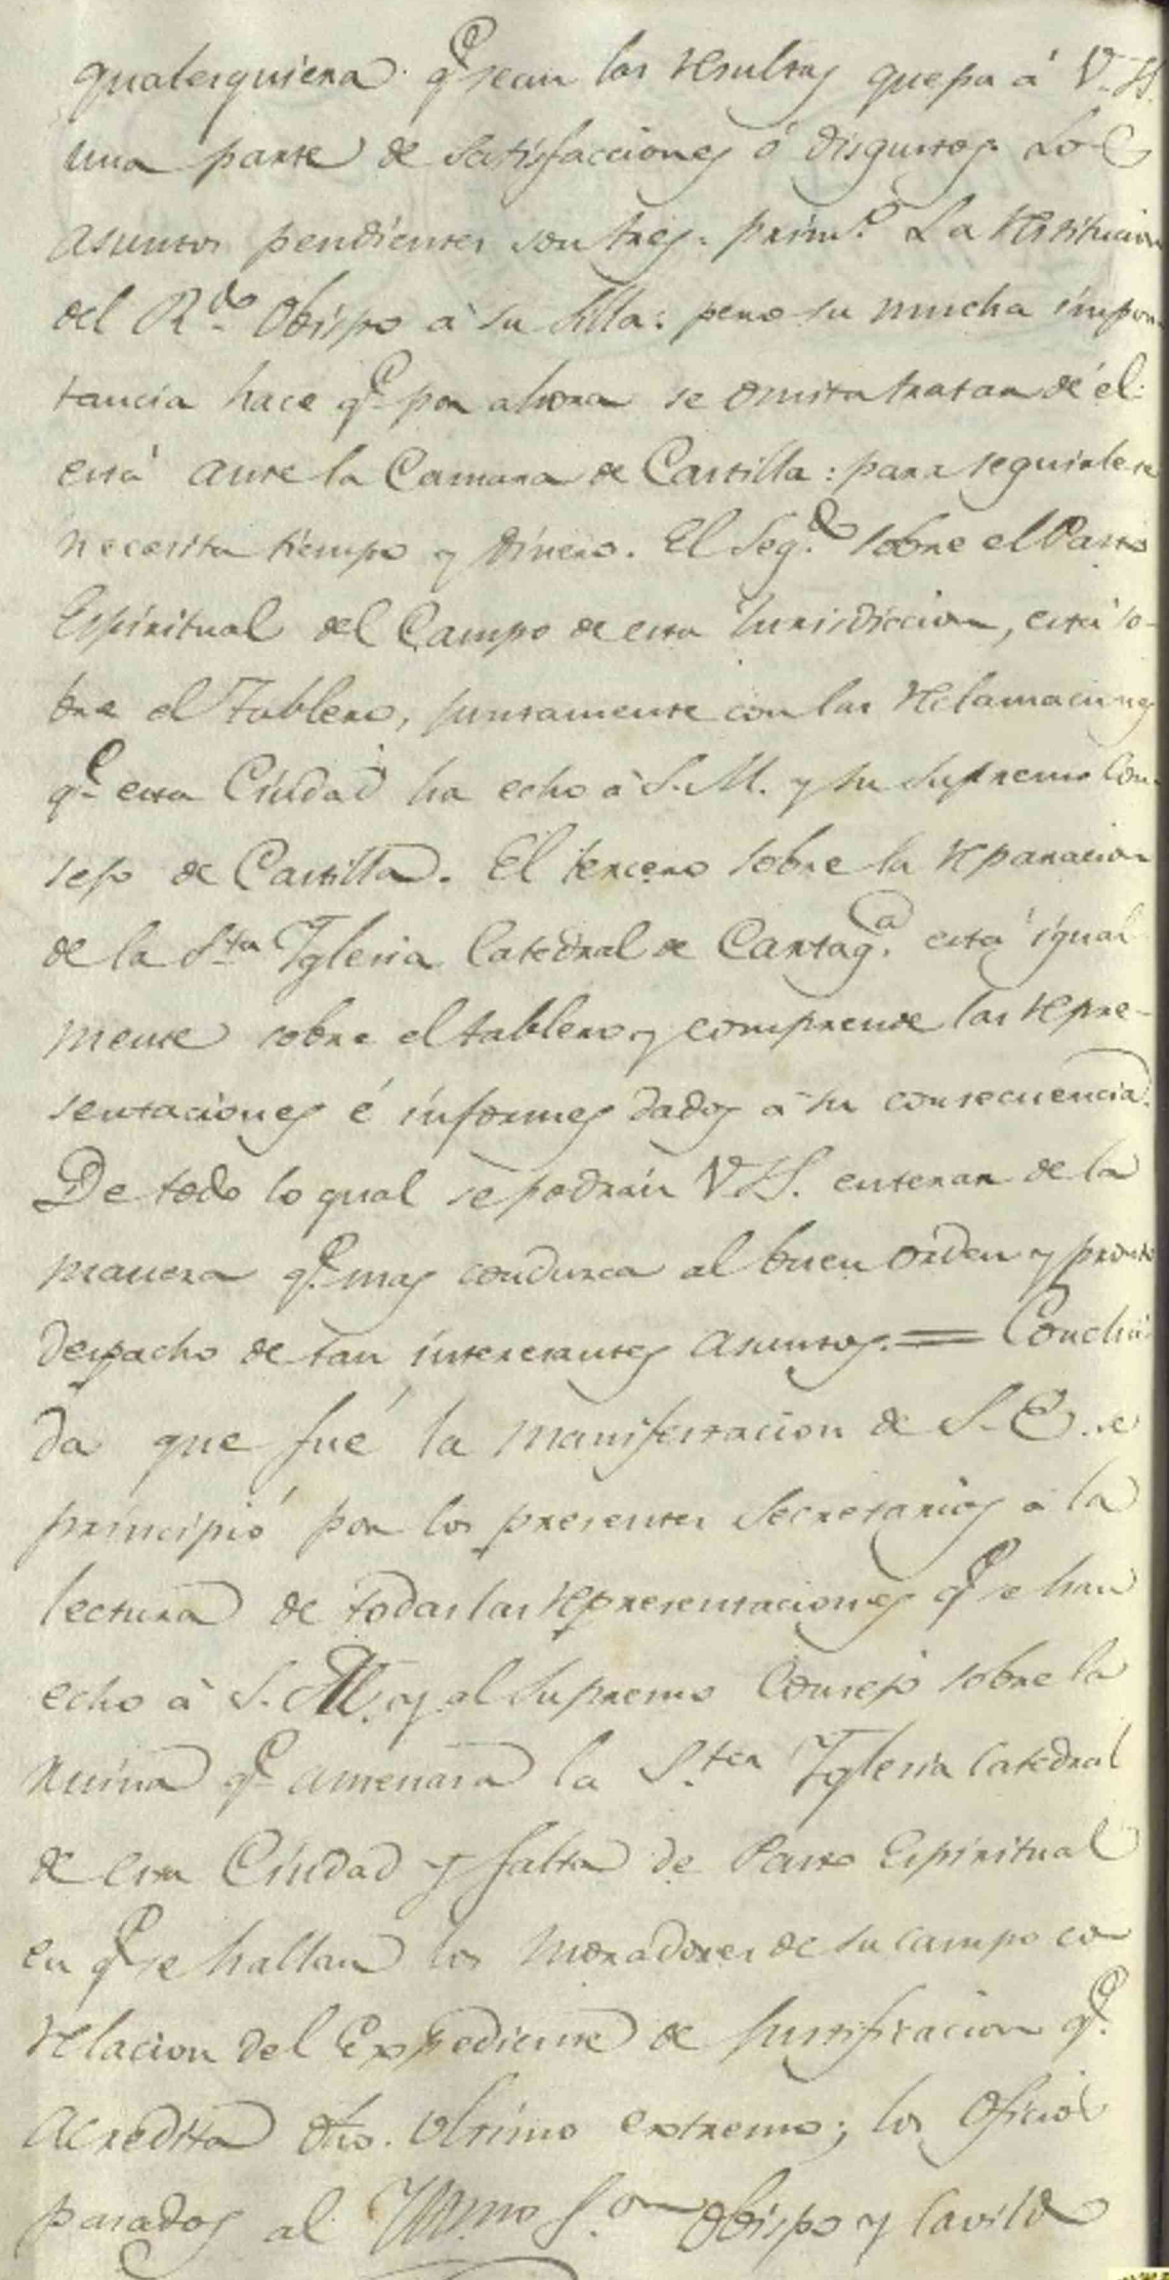 qualesquiera qe. sean las resultas quepa á V.S.
una parte de satisfacciones ó disgustos. Los
asuntos pendientes son tres: prim.o La restitucion
del R.do Obispo á su Silla: pero su mucha impor-
tancia hace qe. por ahora se omita tratar de él:
está ante la Camara de Castilla: para seguirle se
necesita tiempo y dinero. El Seg.do sobre el Pasto
Espiritual del Campo de esta Jurisdiccion, está so-
bre el Tablero, juntamente con las reclamaciones
qe. esta Ciudad ha echo á S.M. y su Supremo Con-
sejo de Castilla. El tercero sobre la reparacion
de la Sta Iglesia Catedral de Cartag.a está igual
mente sobre el tablero y comprende las repre-
sentaciones é informes dados á su consecuencia.
De todo lo qual se podrán V.S. enterar de la
manera qe. mas condusca al buen orden y pronto
despacho de tan interesantes asuntos. = Conclui-
da que fué la manifestacion de S.E. se
principió por los presentes Secretarios á la
lectura de todas las representaciones qe. se han
echo á S.M. y al Supremo Consejo sobre la
ruina qe. amenasa la S.ta Iglesia Catedral
de esta Ciudad y falta de Pasto Espiritual
en qe. se hallan los moradores de su campo con
relacion del Expediente de justificacion qe.
acredita dho. ultimo extremo; los oficios
pasados al Yllmo S.or Obispo y Cavildo